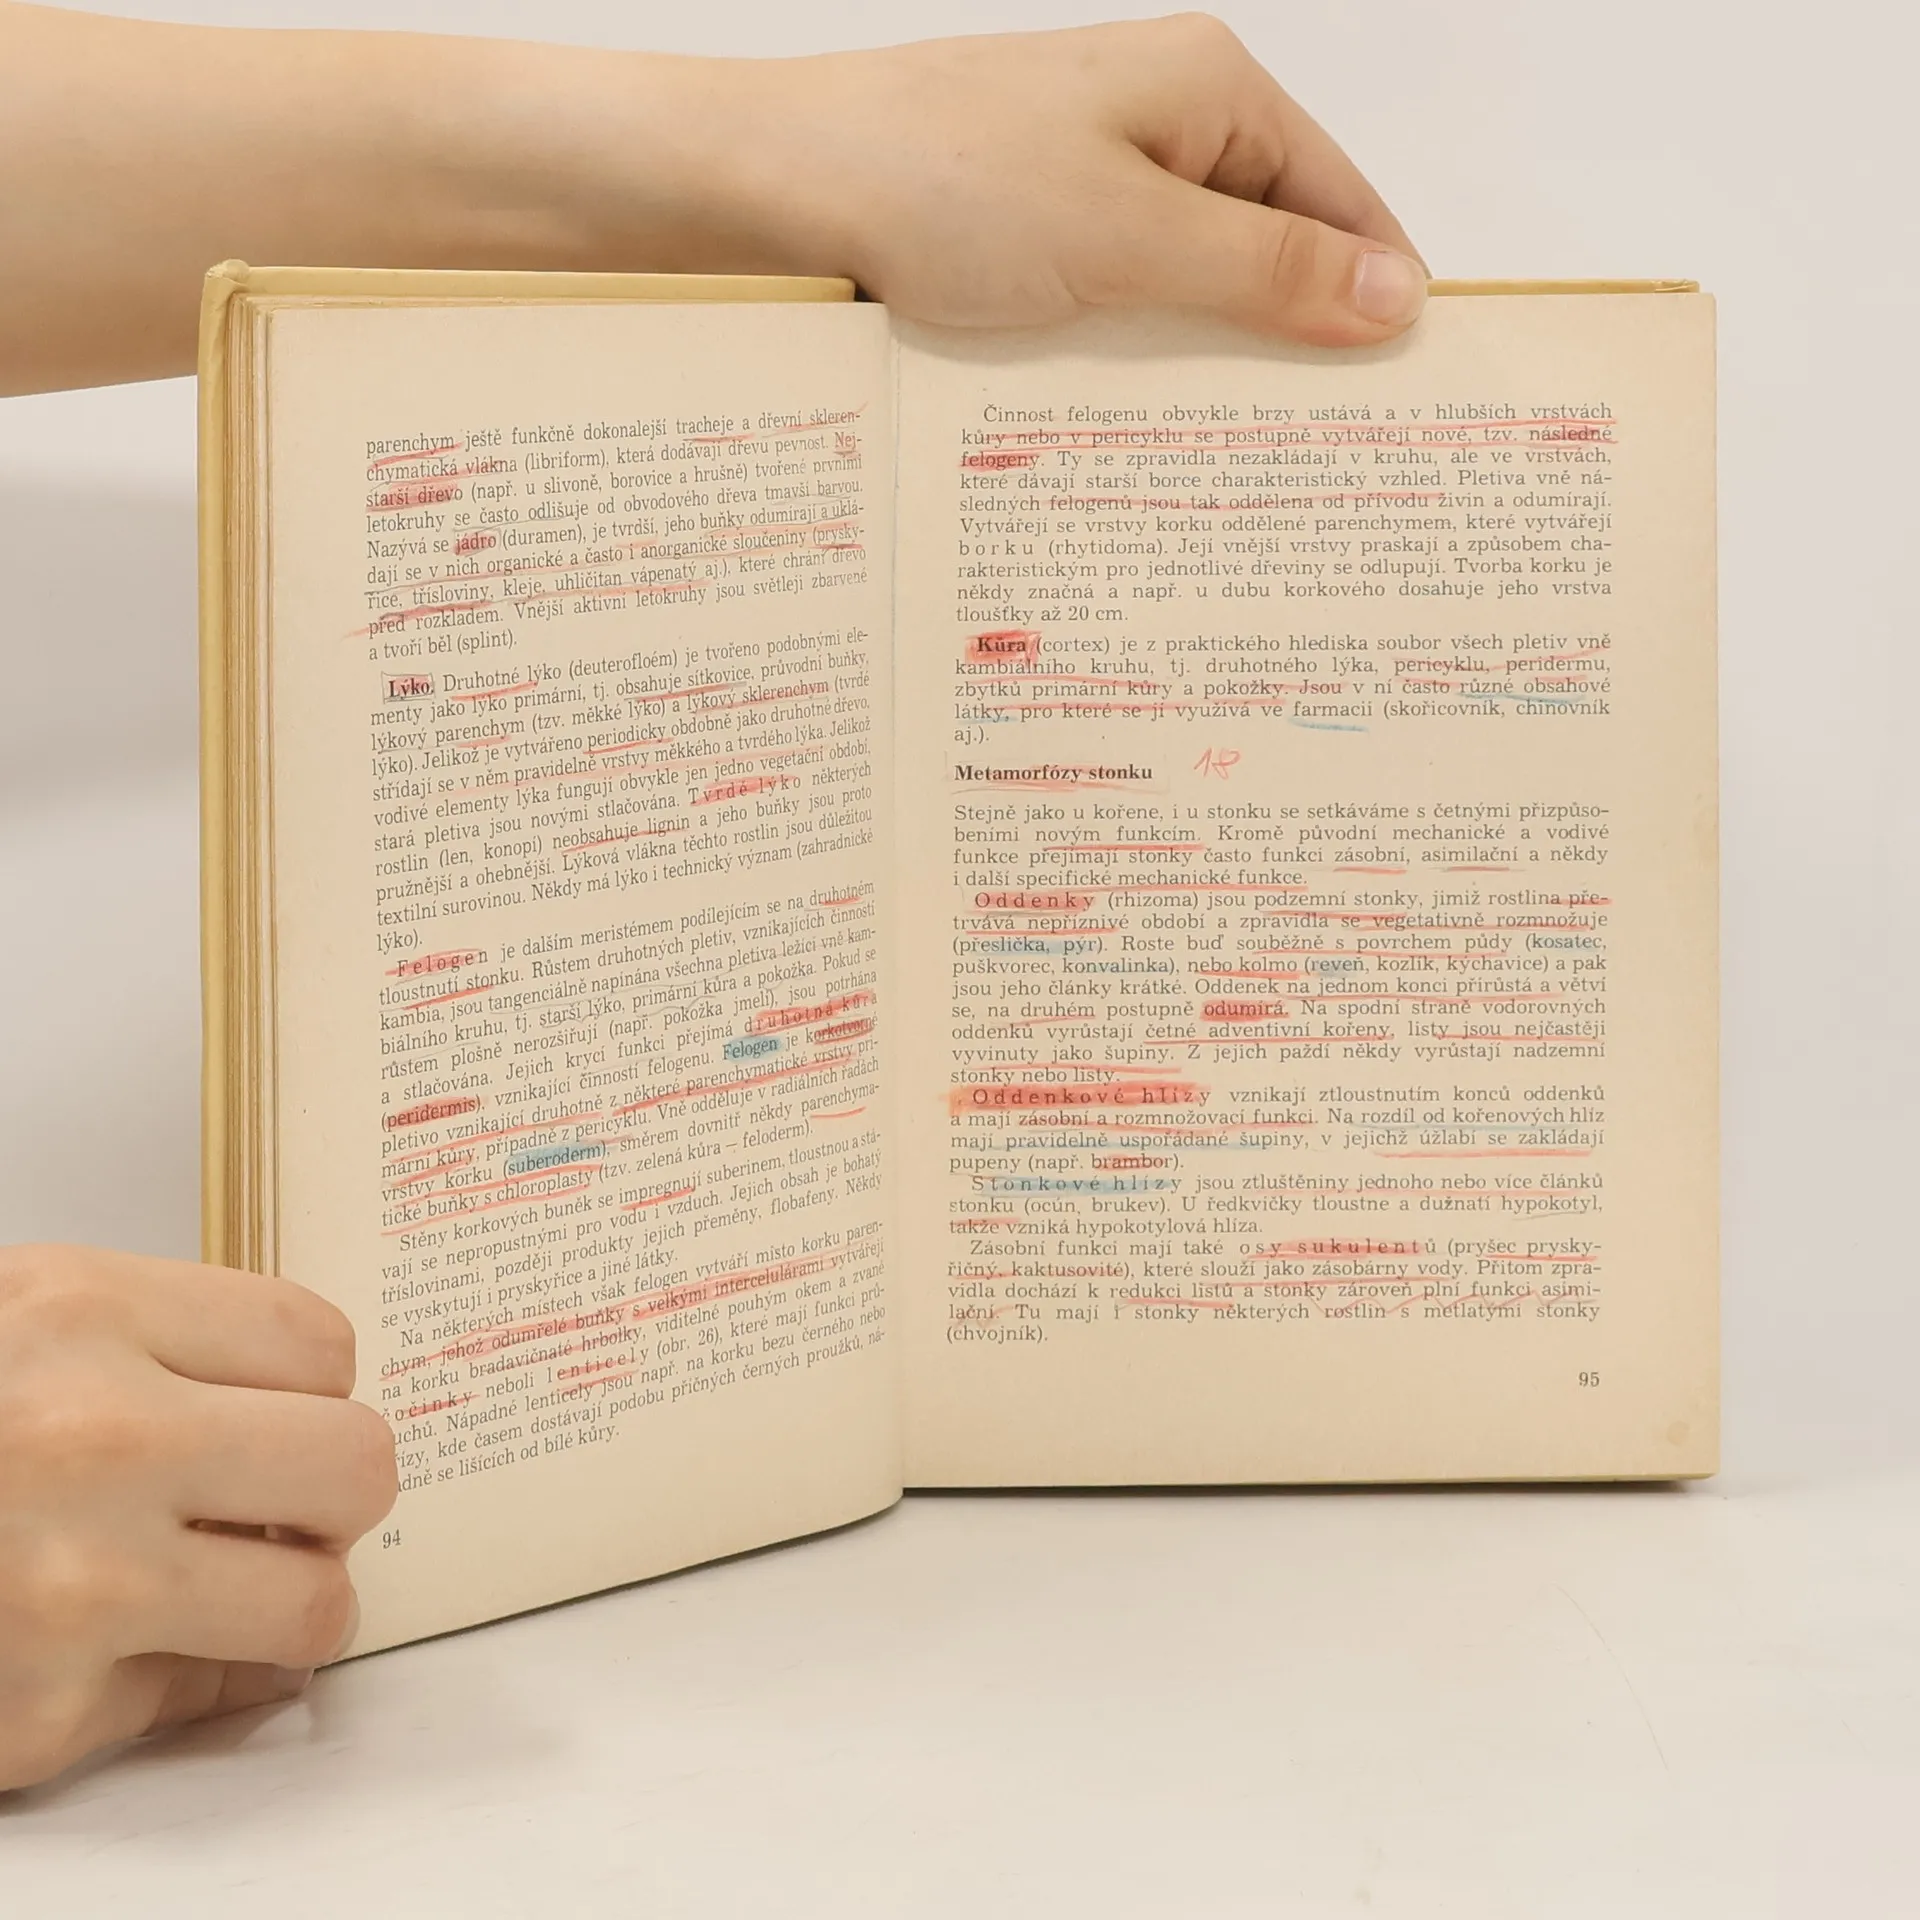 parenchym ještě funkčně dokonalejší tracheje a dřevní skleren-
chymatická vlákna (libriform), která dodávají dřevu pevnost. Nej-
starší dřevo (např. u slivoně, borovice a hrušně) tvořené prvními
letokruhy se často odlišuje od obvodového dřeva tmavší barvou.
Nazývá se jádro (duramen), je tvrdší, jeho buňky odumírají a uklá-
dají se v nich organické a často i anorganické sloučeniny (prysky-
řice, třísloviny, kleje, uhličitan vápenatý aj.), které chrání dřevo
před rozkladem. Vnější aktivní letokruhy jsou světleji zbarvené
a tvoří běl (splint).
Lýko. Druhotné lýko (deuterofloém) je tvořeno podobnými ele-
menty jako lýko primární, tj. obsahuje sítkovice, průvodní buňky,
lýkový parenchym (tzv. měkké lýko) a lýkový sklerenchym (tvrdé
lýko). Jelikož je vytvářeno periodicky obdobně jako druhotné dřevo,
střídají se v něm pravidelně vrstvy měkkého a tvrdého lýka. Jelikož
vodivé elementy lýka fungují obvykle jen jedno vegetační období,
stará pletiva jsou novými stlačována. Tvrdé lýko některých
rostlin (len, konopí) neobsahuje lignin a jeho buňky jsou proto
pružnější a ohebnější. Lýková vlákna těchto rostlin jsou důležitou
textilní surovinou. Někdy má lýko i technický význam (zahradnické
lýko).
Felogen je dalším meristémem podílejícím se na druhotném
tloustnutí stonku. Růstem druhotných pletiv, vznikajících činností
kambia, jsou tangenciálně napínána všechna pletiva ležící vně kam-
biálního kruhu, tj. starší lýko, primární kůra a pokožka. Pokud se
růstem plošně nerozšiřují (např. pokožka jmelí), jsou potrhána
a stlačována. Jejich krycí funkci přejímá druhotná kůra
(peridermis), vznikající činností felogenu. Felogen je korkotvorné
pletivo vznikající druhotně z některé parenchymatické vrstvy pri-
mární kůry, případně z pericyklu. Vně odděluje v radiálních řadách
vrstvy korku (suberoderm), směrem dovnitř někdy parenchyma-
tické buňky s chloroplasty (tzv. zelená kůra – feloderm).
Stěny korkových buněk se impregnují suberinem, tloustnou a stá-
vají se nepropustnými pro vodu i vzduch. Jejich obsah je bohatý
tříslovinami, později produkty jejich přeměny, flobafeny. Někdy
se vyskytují i pryskyřice a jiné látky.
Na některých místech však felogen vytváří místo korku paren-
chym, jehož odumřelé buňky s velkými intercelulárami vytvářejí
na korku bradavičnaté hrbolky, viditelné pouhým okem a zvané
čočinky neboli lenticely (obr. 26), které mají funkci prů-
uchů. Nápadné lenticely jsou např. na korku bezu černého nebo
řízy, kde časem dostávají podobu příčných černých proužků, ná-
adně se lišících od bílé kůry.
94
Činnost felogenu obvykle brzy ustává a v hlubších vrstvách
kůry nebo v pericyklu se postupně vytvářejí nové, tzv. následné
felogeny. Ty se zpravidla nezakládají v kruhu, ale ve vrstvách,
které dávají starší borce charakteristický vzhled. Pletiva vně ná-
sledných felogenů jsou tak oddělena od přívodu živin a odumírají.
Vytvářejí se vrstvy korku oddělené parenchymem, které vytvářejí
borku (rhytidoma). Její vnější vrstvy praskají a způsobem cha-
rakteristickým pro jednotlivé dřeviny se odlupují. Tvorba korku je
někdy značná a např. u dubu korkového dosahuje jeho vrstva
tloušťky až 20 cm.
Kůra (cortex) je z praktického hlediska soubor všech pletiv vně
kambiálního kruhu, tj. druhotného lýka, pericyklu, peridermu,
zbytků primární kůry a pokožky. Jsou v ní často různé obsahové
látky, pro které se jí využívá ve farmacii (skořicovník, chinovník
aj.).
Metamorfózy stonku 18
Stejně jako u kořene, i u stonku se setkáváme s četnými přizpůso-
beními novým funkcím. Kromě původní mechanické a vodivé
funkce přejímají stonky často funkci zásobní, asimilační a někdy
i další specifické mechanické funkce.
Oddenky (rhizoma) jsou podzemní stonky, jimiž rostlina pře-
trvává nepříznivé období a zpravidla se vegetativně rozmnožuje
(přeslička, pýr). Roste buď souběžně s povrchem půdy (kosatec,
puškvorec, konvalinka), nebo kolmo (reveň, kozlík, kýchavice) a pak
jsou jeho články krátké. Oddenek na jednom konci přirůstá a větví
se, na druhém postupně odumírá. Na spodní straně vodorovných
oddenků vyrůstají četné adventivní kořeny, listy jsou nejčastěji
vyvinuty jako šupiny. Z jejich paždí někdy vyrůstají nadzemní
stonky nebo listy.
Oddenkové hlízy vznikají ztloustnutím konců oddenků
a mají zásobní a rozmnožovací funkci. Na rozdíl od kořenových hlíz
mají pravidelně uspořádané šupiny, v jejichž úžlabí se zakládají
pupeny (např. brambor).
Stonkové hlízy jsou ztluštěniny jednoho nebo více článků
stonku (ocún, brukev). U ředkvičky tloustne a dužnatí hypokotyl,
takže vzniká hypokotylová hlíza.
Zásobní funkci mají také osy sukulentů (pryšec prysky-
řičný, kaktusovité), které slouží jako zásobárny vody. Přitom zpra-
vidla dochází k redukci listů a stonky zároveň plní funkci asimi-
lační. Tu mají i stonky některých rostlin s metlatými stonky
(chvojník).
95